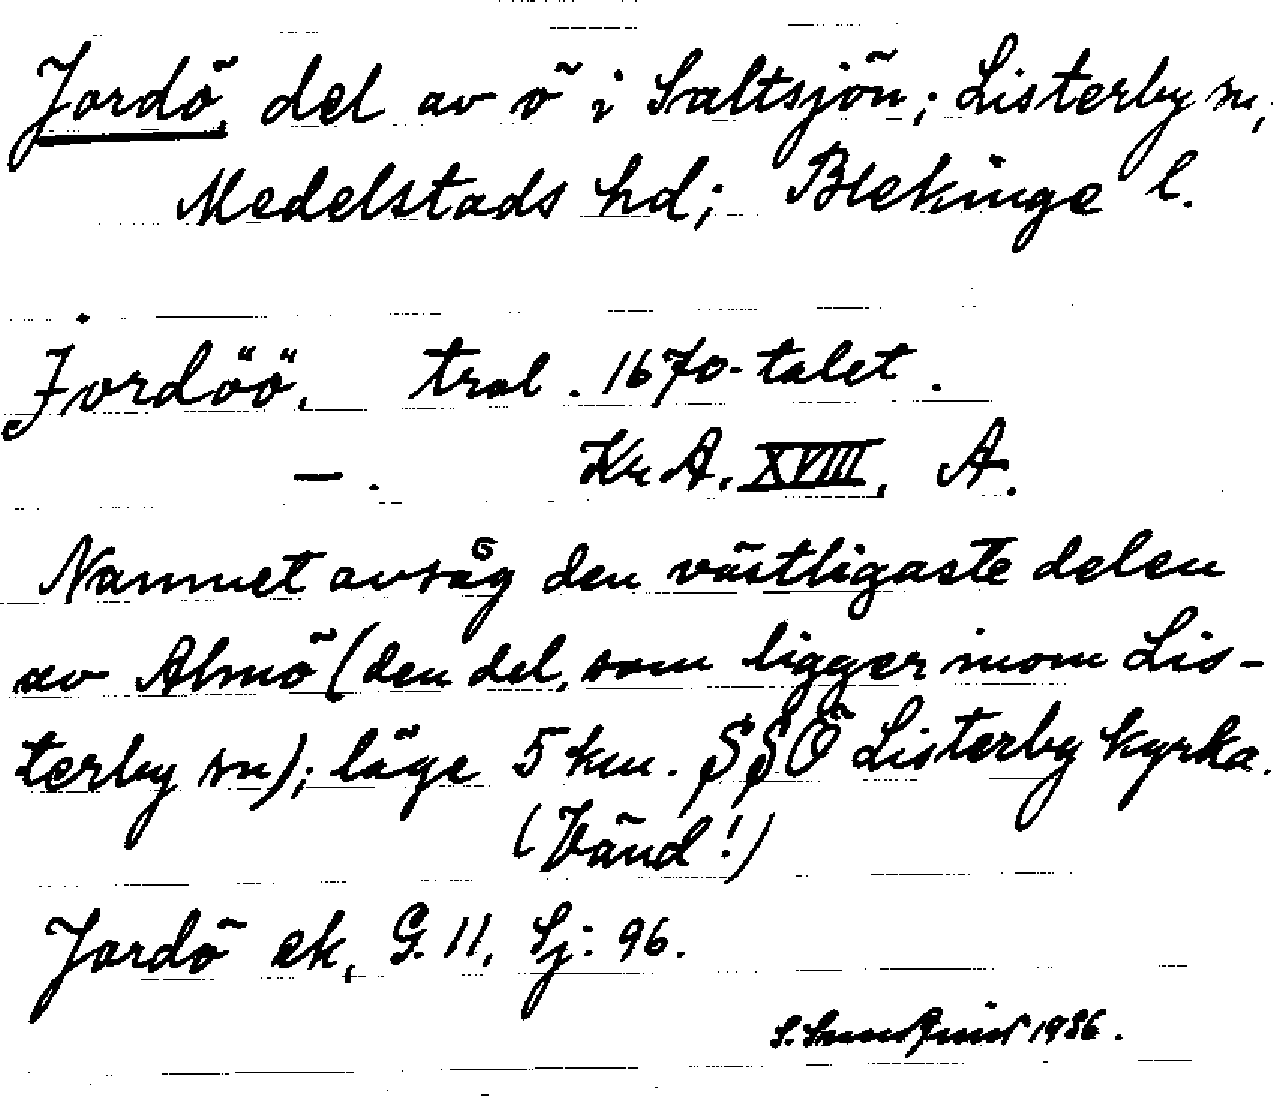 Jordö, del av ö i Saltsjön; Listerby sn,
Medelstads hd; Blekinge l.
Jordöö. tral. 1670-talet.
—. KrA. XVIII, A.
Namnet avsåg den västligaste delen
av Almö (den del, som ligger inom Lis-
terby sn); läge 5 km. SSÖ Listerby kyrka.
(Vänd!)
Jordö ek, G. 11, Sj: 96.
1936.